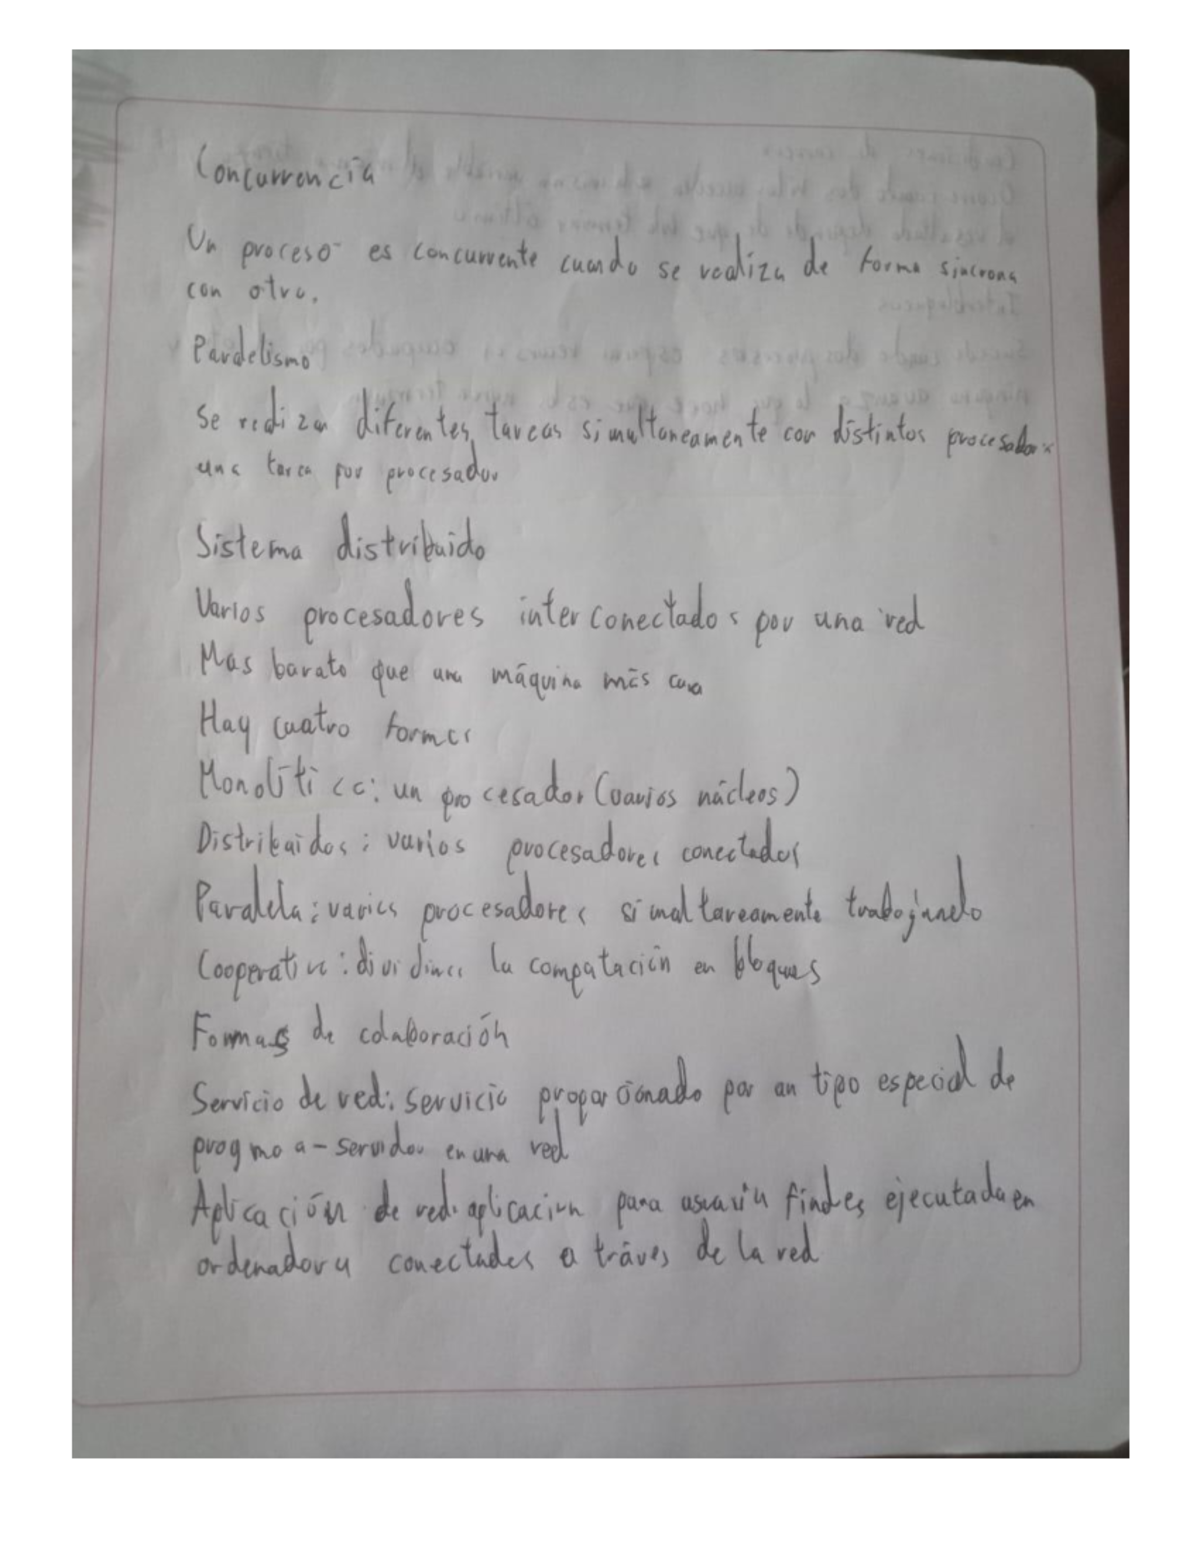 Concurrencia
Un proceso es concurrente cuando se realiza de forma sincrona
con otro.
Paralelismo
Se realizan diferentes tareas simultaneamente con distintos procesadores
una tarea por procesador
Sistema distribuido
Varios procesadores interconectados por una red
Mas barato que una máquina más cara
Hay cuatro formas
Monolítico: un procesador (varios núcleos)
Distribuidos: varios procesadores conectados
Paralela: varios procesadores simultareamente trabajando
Cooperativa: dividimos la computación en bloques
Formas de colaboración
Servicio de red: servicio proporcionado por un tipo especial de
progmo a - servidor en una red
Aplicación de red: aplicación para usuario finales ejecutada en
ordenadores conectados a tráves de la red